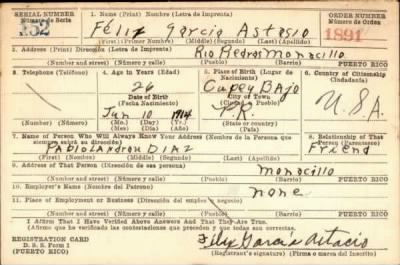 SERIAL NUMBER
1. Name (Print) Nombre (Letra de Imprenta)
ORDER NUMBER
Número de Serie
Número de Orden
152
Féliz García Astasio
1891
(First) (Primer Nombre) (Middle) (Segundo) (Last) (Apellido)
2. Address (Print) Dirección (Letra de Imprenta)
Rio Piedras Monacillo
(Number) (Número) (Street) (Número y calle) (Town) (Pueblo)
PUERTO RICO
3. Telephone (Teléfono)
4. Age in Years (Edad)
5. Place of Birth (Lugar de Nacimiento)
6. Country of Citizenship (Ciudadanía)
26
Cupey Bajo
Date of Birth
City or Town
(Fecha Nacimiento)
(Ciudad o Pueblo)
U.S.A.
Jun 10 1914
P.R.
(Number) (Número)
(Mo.) (Day) (Yr.)
(State or country)
7. Name of Person Who Will Always Know Your Address (Nombre de la Persona que siempre sabrá su dirección)
8. Relationship of That Person (Parentesco)
Pablo Landrau DIAZ
Friend
(First) (Nombre) (Middle) (Segundo) (Last) (Apellido)
9. Address of That Person (Dirección de esa persona)
Monacillo
(Number and street) (Número y calle) (Town) (Pueblo)
PUERTO RICO
10. Employer's Name (Nombre del Patrono)
none
11. Place of Employment or Business (Dirección del empleo o negocio)
(Number and street) (Número y calle) (Town) (Pueblo)
PUERTO RICO
I Affirm That I Have Verified Above Answers And That They Are True.
(Afirmo que he verificado las contestaciones que preceden y que todas son correctas.)
REGISTRATION CARD
D. S. S. Form 1
(PUERTO RICO)
Felix García Astacio
(Registrant's signature) (Firma o marca del Inscrito)